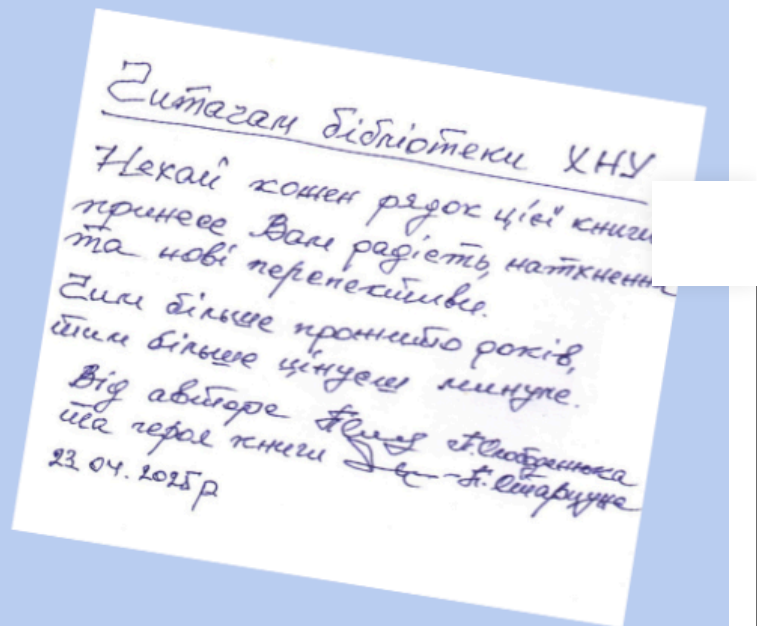 Читачам бібліотеки ХНУ
Нехай кожен рядок цієї книги
принесе Вам радість, натхнення
та нові перспективи.
Чим більше прожито років,
тим більше цінуєш минуле.
Від автора П. Слободянюка
та героя книги П. Старцуна
23.04.2025р